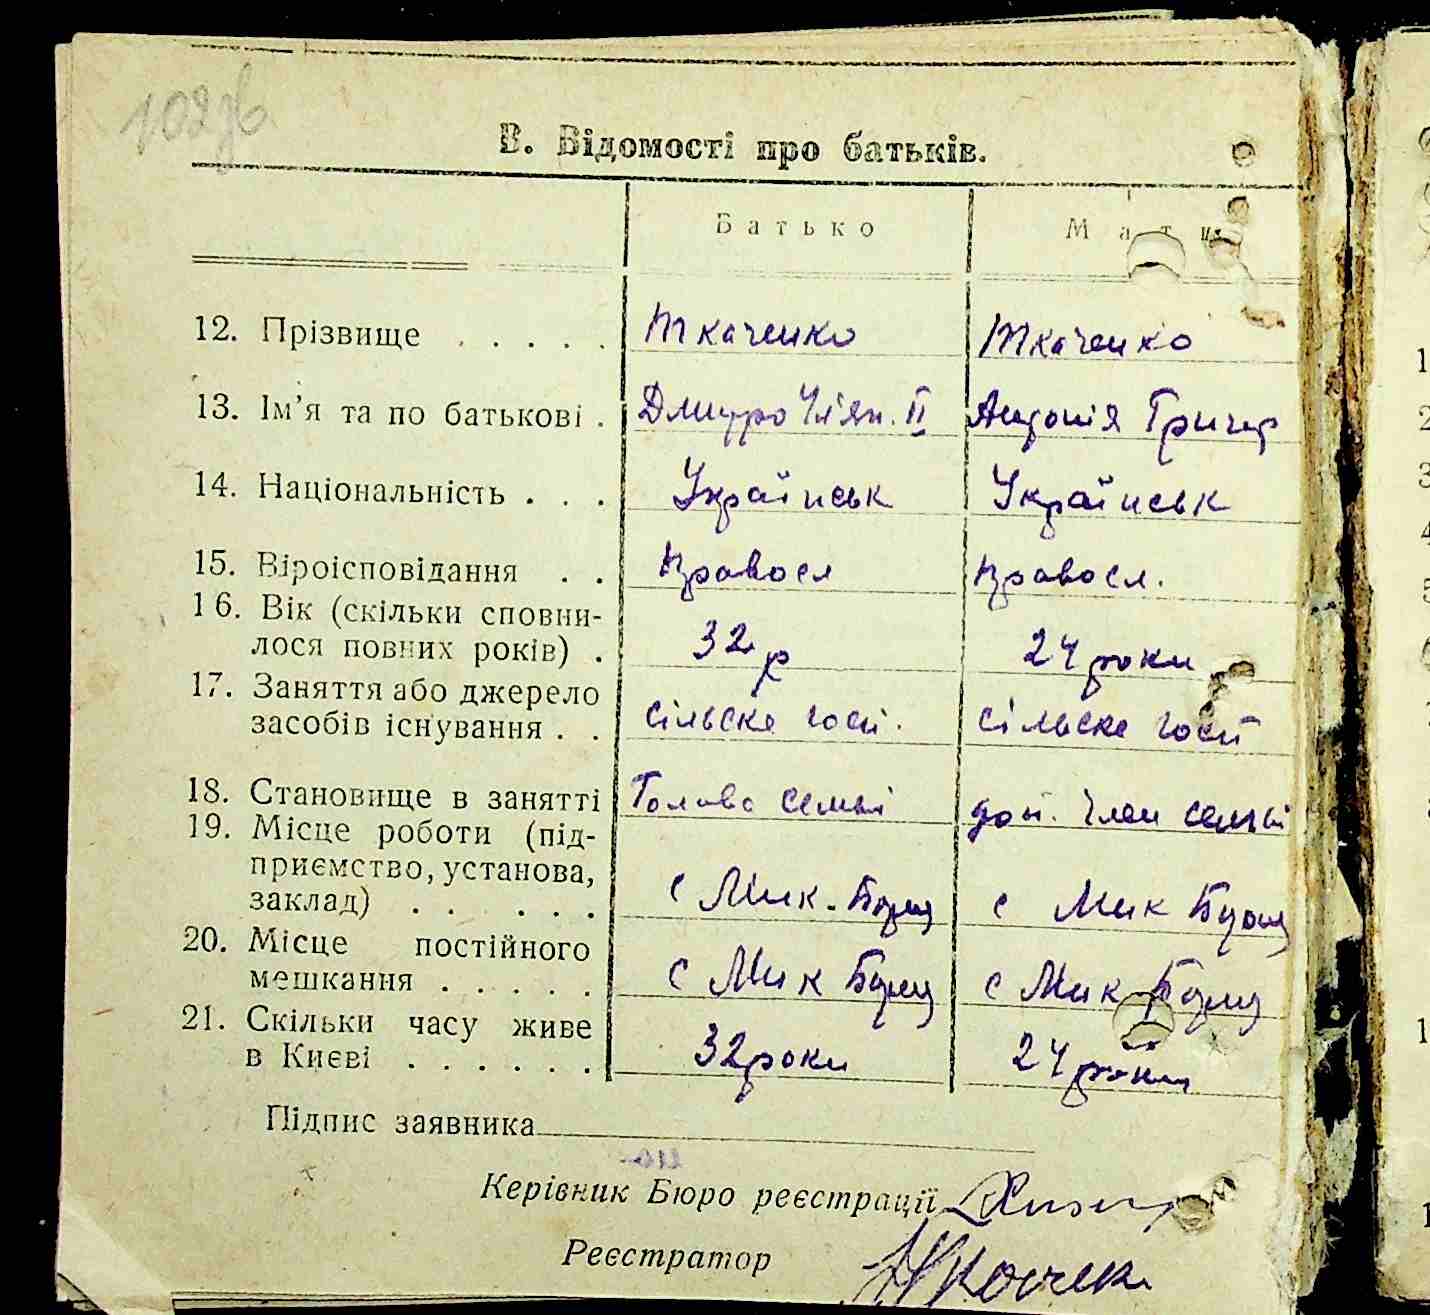 В. Відомості про батьків.
Батько Мати
12. Прізвище . . . . . Ткаченко Ткаченко
13. Ім’я та по батькові . Дмитро Ул'ян. II Антонія Григор
14. Національність . . . Українськ Українськ
15. Віроісповідання . . Правосл Правосл.
16. Вік (скільки сповни-
лося повних років) . 32 р 24 роки
17. Заняття або джерело
засобів існування . . сільске госп. сільске госп
18. Становище в занятті Голова семьі доп. член семьі
19. Місце роботи (під-
приємство, установа,
заклад) . . . . . с Мик. Борщ с Мик Борщ
20. Місце постійного
мешкання . . . . . с Мик Борщ с Мик Борщ
21. Скільки часу живе
в Києві . . . . . . 32 роки 24 роки
Підпис заявника
Керівник Бюро реєстрації
Реєстратор